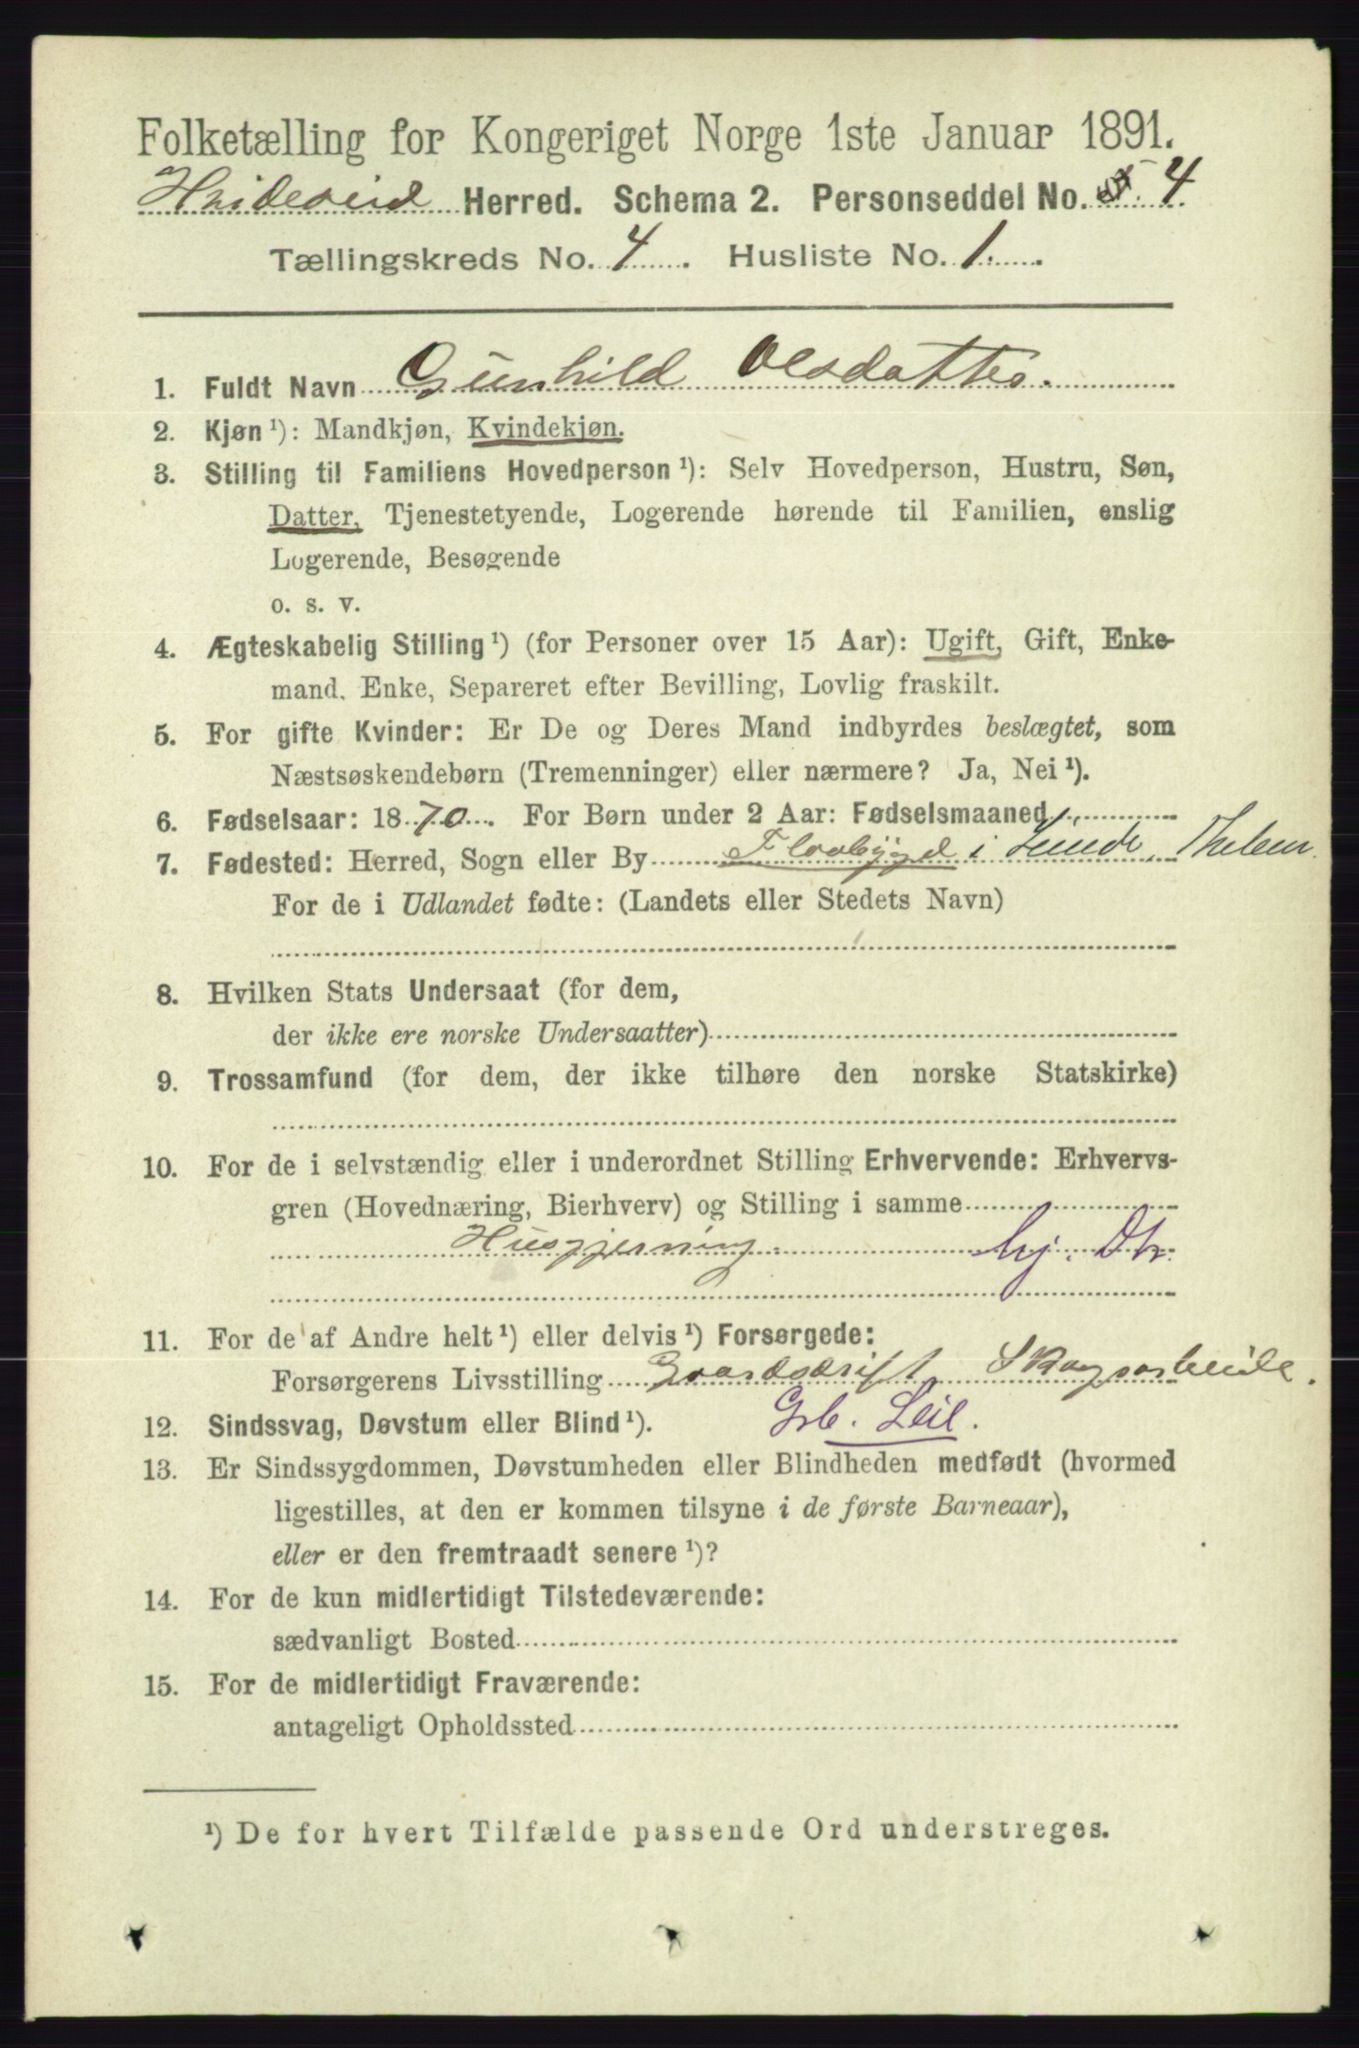 Folketælling for Kongeriget Norge 1ste Januar 1891.
Hvideseid Herred. Schema 2. Personseddel No. 4
Tællingskreds No. 4 Husliste No. 1.
1. Fuldt Navn Gunhild Olsdatter.
2. Kjøn ¹): Mandkjøn, Kvindekjøn.
3. Stilling til Familiens Hovedperson ¹): Selv Hovedperson, Hustru, Søn,
Datter, Tjenestetyende, Logerende hørende til Familien, enslig
Logerende, Besøgende
o. s. v.
4. Ægteskabelig Stilling ¹) (for Personer over 15 Aar): Ugift, Gift, Enke-
mand, Enke, Separeret efter Bevilling, Lovlig fraskilt.
5. For gifte Kvinder: Er De og Deres Mand indbyrdes beslægtet, som
Næstsøskendebørn (Tremenninger) eller nærmere? Ja, Nei ¹).
6. Fødselsaar: 1870. For Børn under 2 Aar: Fødselsmaaned
7. Fødested: Herred, Sogn eller By Flaabygd i Lunde, Thelem.
For de i Udlandet fødte: (Landets eller Stedets Navn)
8. Hvilken Stats Undersaat (for dem,
der ikke ere norske Undersaatter)
9. Trossamfund (for dem, der ikke tilhøre den norske Statskirke)
10. For de i selvstændig eller i underordnet Stilling Erhvervende: Erhvervs-
gren (Hovednæring, Bierhverv) og Stilling i samme
Husgjerning. hj. Dtr.
11. For de af Andre helt ¹) eller delvis ¹) Forsørgede:
Forsørgerens Livsstilling Gaardsdrift Skogsarbeide.
12. Sindssvag, Døvstum eller Blind ¹). Grb. Leil.
13. Er Sindssygdommen, Døvstumheden eller Blindheden medfødt (hvormed
ligestilles, at den er kommen tilsyne i de første Barneaar),
eller er den fremtraadt senere ¹)?
14. For de kun midlertidigt Tilstedeværende:
sædvanligt Bosted
15. For de midlertidigt Fraværende:
antageligt Opholdssted
¹) De for hvert Tilfælde passende Ord understreges.